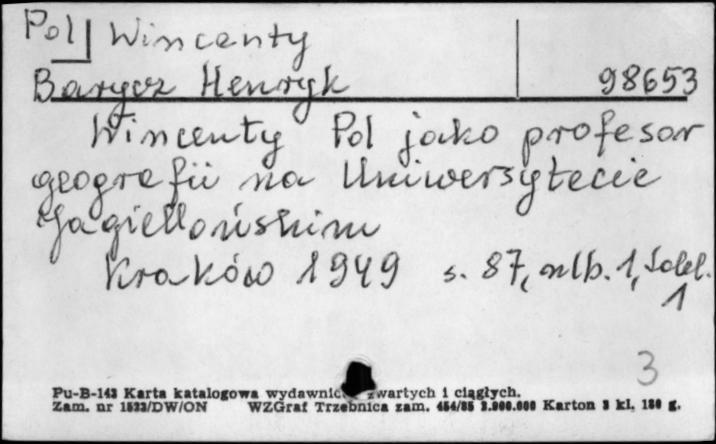 Pol Wincenty
Barycz Henryk 98653
Wincenty Pol jako profesor
geografii na Uniwersytecie
Jagiellońskim
Kraków 1949 s. 87, nlb. 1, tabl.
1
3
Pu-B-143 Karta katalogowa wydawnictw zwartych i ciągłych.
Zam. nr 1523/DW/ON WZGraf Trzebnica zam. 454/85 2.000.000 Karton 3 kl. 180 g.